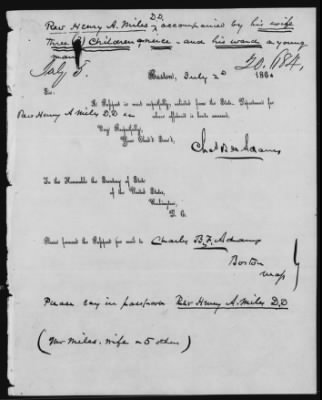 D.D.
Rev Henry A. Miles, accompanied by his wife
Three Children & niece - and his ward a young
man
July 5. 20.684,
Boston, July 2d 1864
Sir:
A Passport is most respectfully solicited from the State Department for
Rev Henry A Miles D.D whose affidavit is hereto annexed.
Very Respectfully,
Your Obed't Serv't,
Chas B F Adams
To the Honorable the Secretary of State
of the United States,
Washington,
D. C.
Please forward the Passport for me to Charles B. F. Adams
Boston
Mass
Please say in passport Rev Henry A. Miles D.D
(Mr Miles, wife & 5 others)